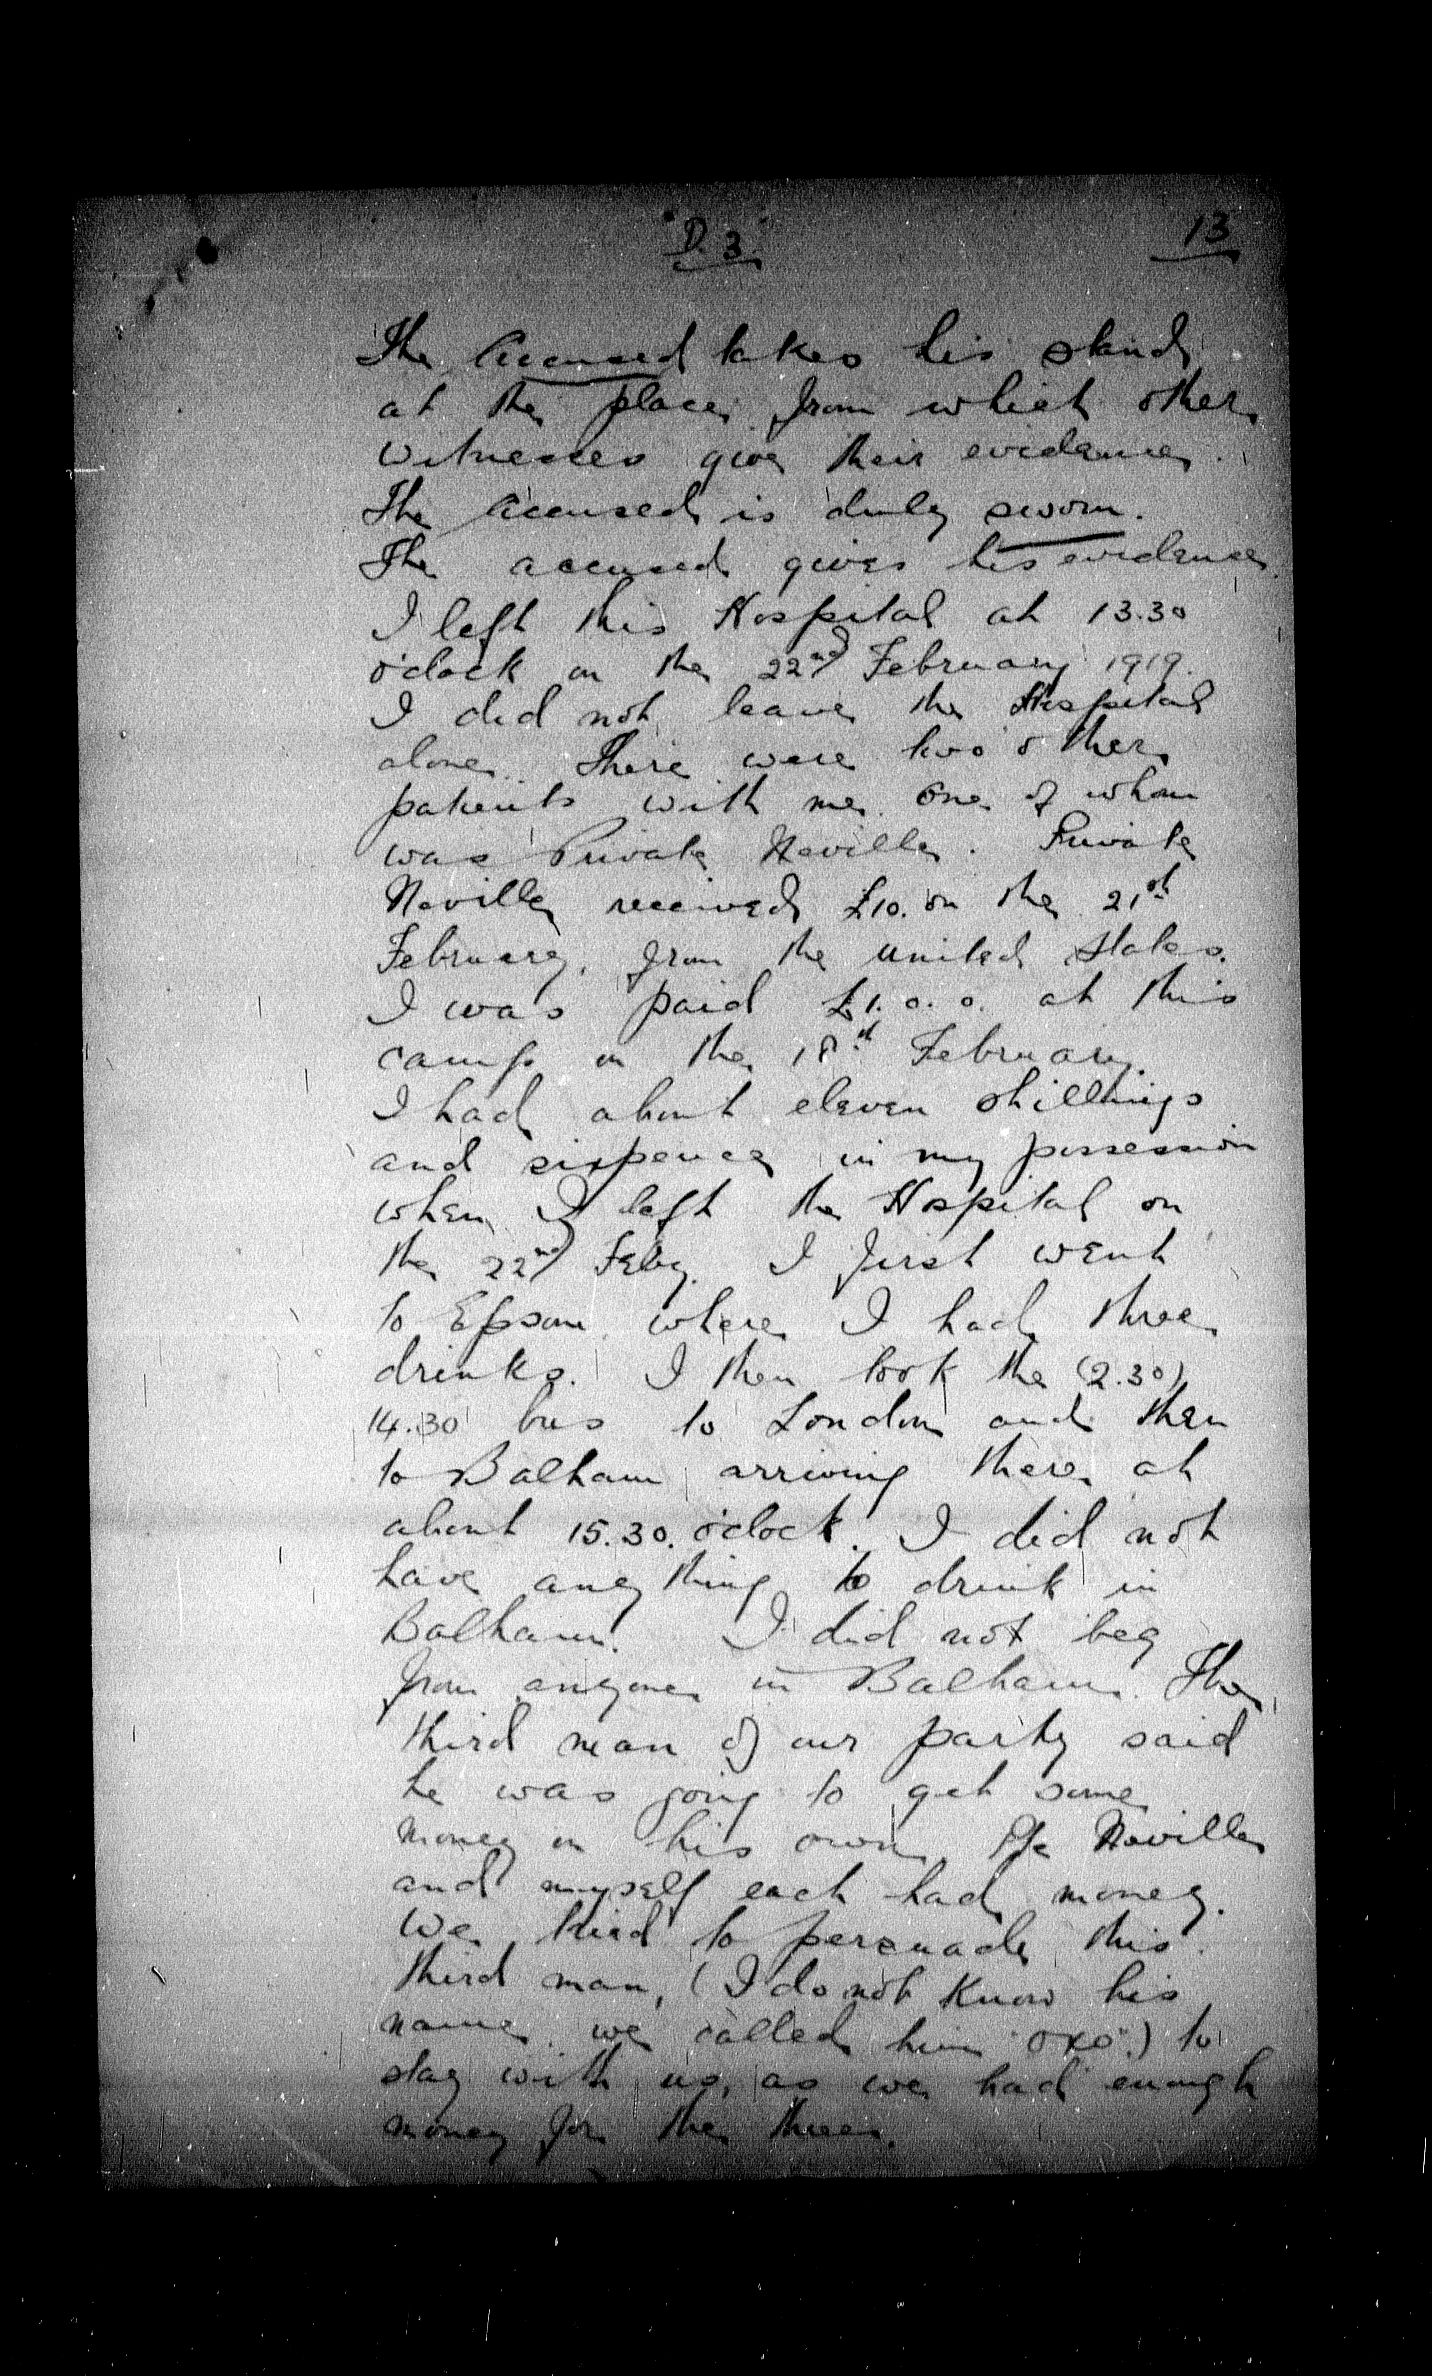 "D.3" 13
The Accused takes his stand
at the place from which other
witnesses give their evidence.
The accused is duly sworn.
The accused gives his evidence.
I left this Hospital at 13.30
o'clock on the 22nd February 1919.
I did not leave the Hospital
alone. There were two other
patients with me one of whom
was Private Neville. Private
Neville received £10. on the 21st
February, from the United States.
I was paid £1.0.0. at this
camp on the 18th February.
I had about eleven shillings
and sixpence in my possession
when I left the Hospital on
the 22nd Feby. I first went
to Epsom where I had three
drinks. I then took the (2.30)
14.30 bus to London and then
to Balham arriving there at
about 15.30. o'clock. I did not
have any thing to drink in
Balham. I did not beg
from anyone in Balham. The
third man of our party said
he was going to get some
money on his own. Pte Neville
and myself each had money.
We tried to persuade this
third man, (I do not know his
name we called him "oxo") to
stay with us, as we had enough
money for the three.